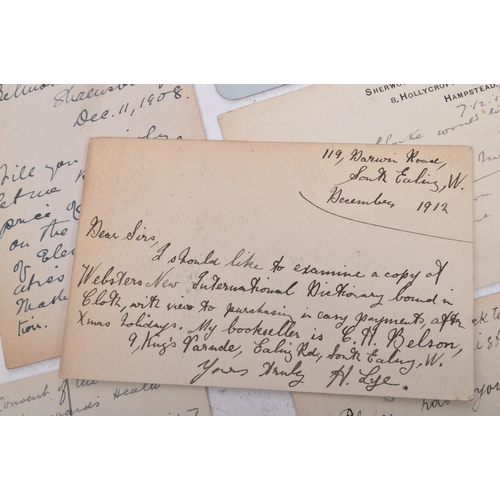 Shrewsb
Dec. 11, 1908.
Will you
let me
price of
on the
of Ele
SHERWO
8, HOLLYCROF
HAMPSTEAD
7.12.1
would
119, Darwin Road,
South Ealing, W.
December 1912
Dear Sirs,
I should like to examine a copy of
Websters New International Dictionary bound in
Cloth, with view to purchasing in easy payments after
Xmas holidays. My bookseller is C. H. Belson,
9, King's Parade, Ealing Rd, South Ealing, W.
Yours truly H. Lye.
tion.
Convent of